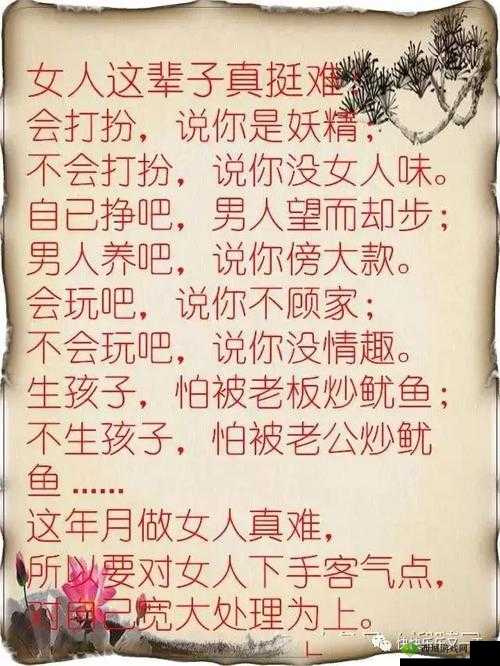 女人这辈子真挺难：
会打扮，说你是妖精；
不会打扮，说你没女人味。
自已挣吧，男人望而却步；
男人养吧，说你傍大款。
会玩吧，说你不顾家；
不会玩吧，说你没情趣。
生孩子，怕被老板炒鱿鱼；
不生孩子，怕被老公炒鱿
鱼 ......
这年月做女人真难，
所以要对女人下手客气点，
对自己宽大处理为上。